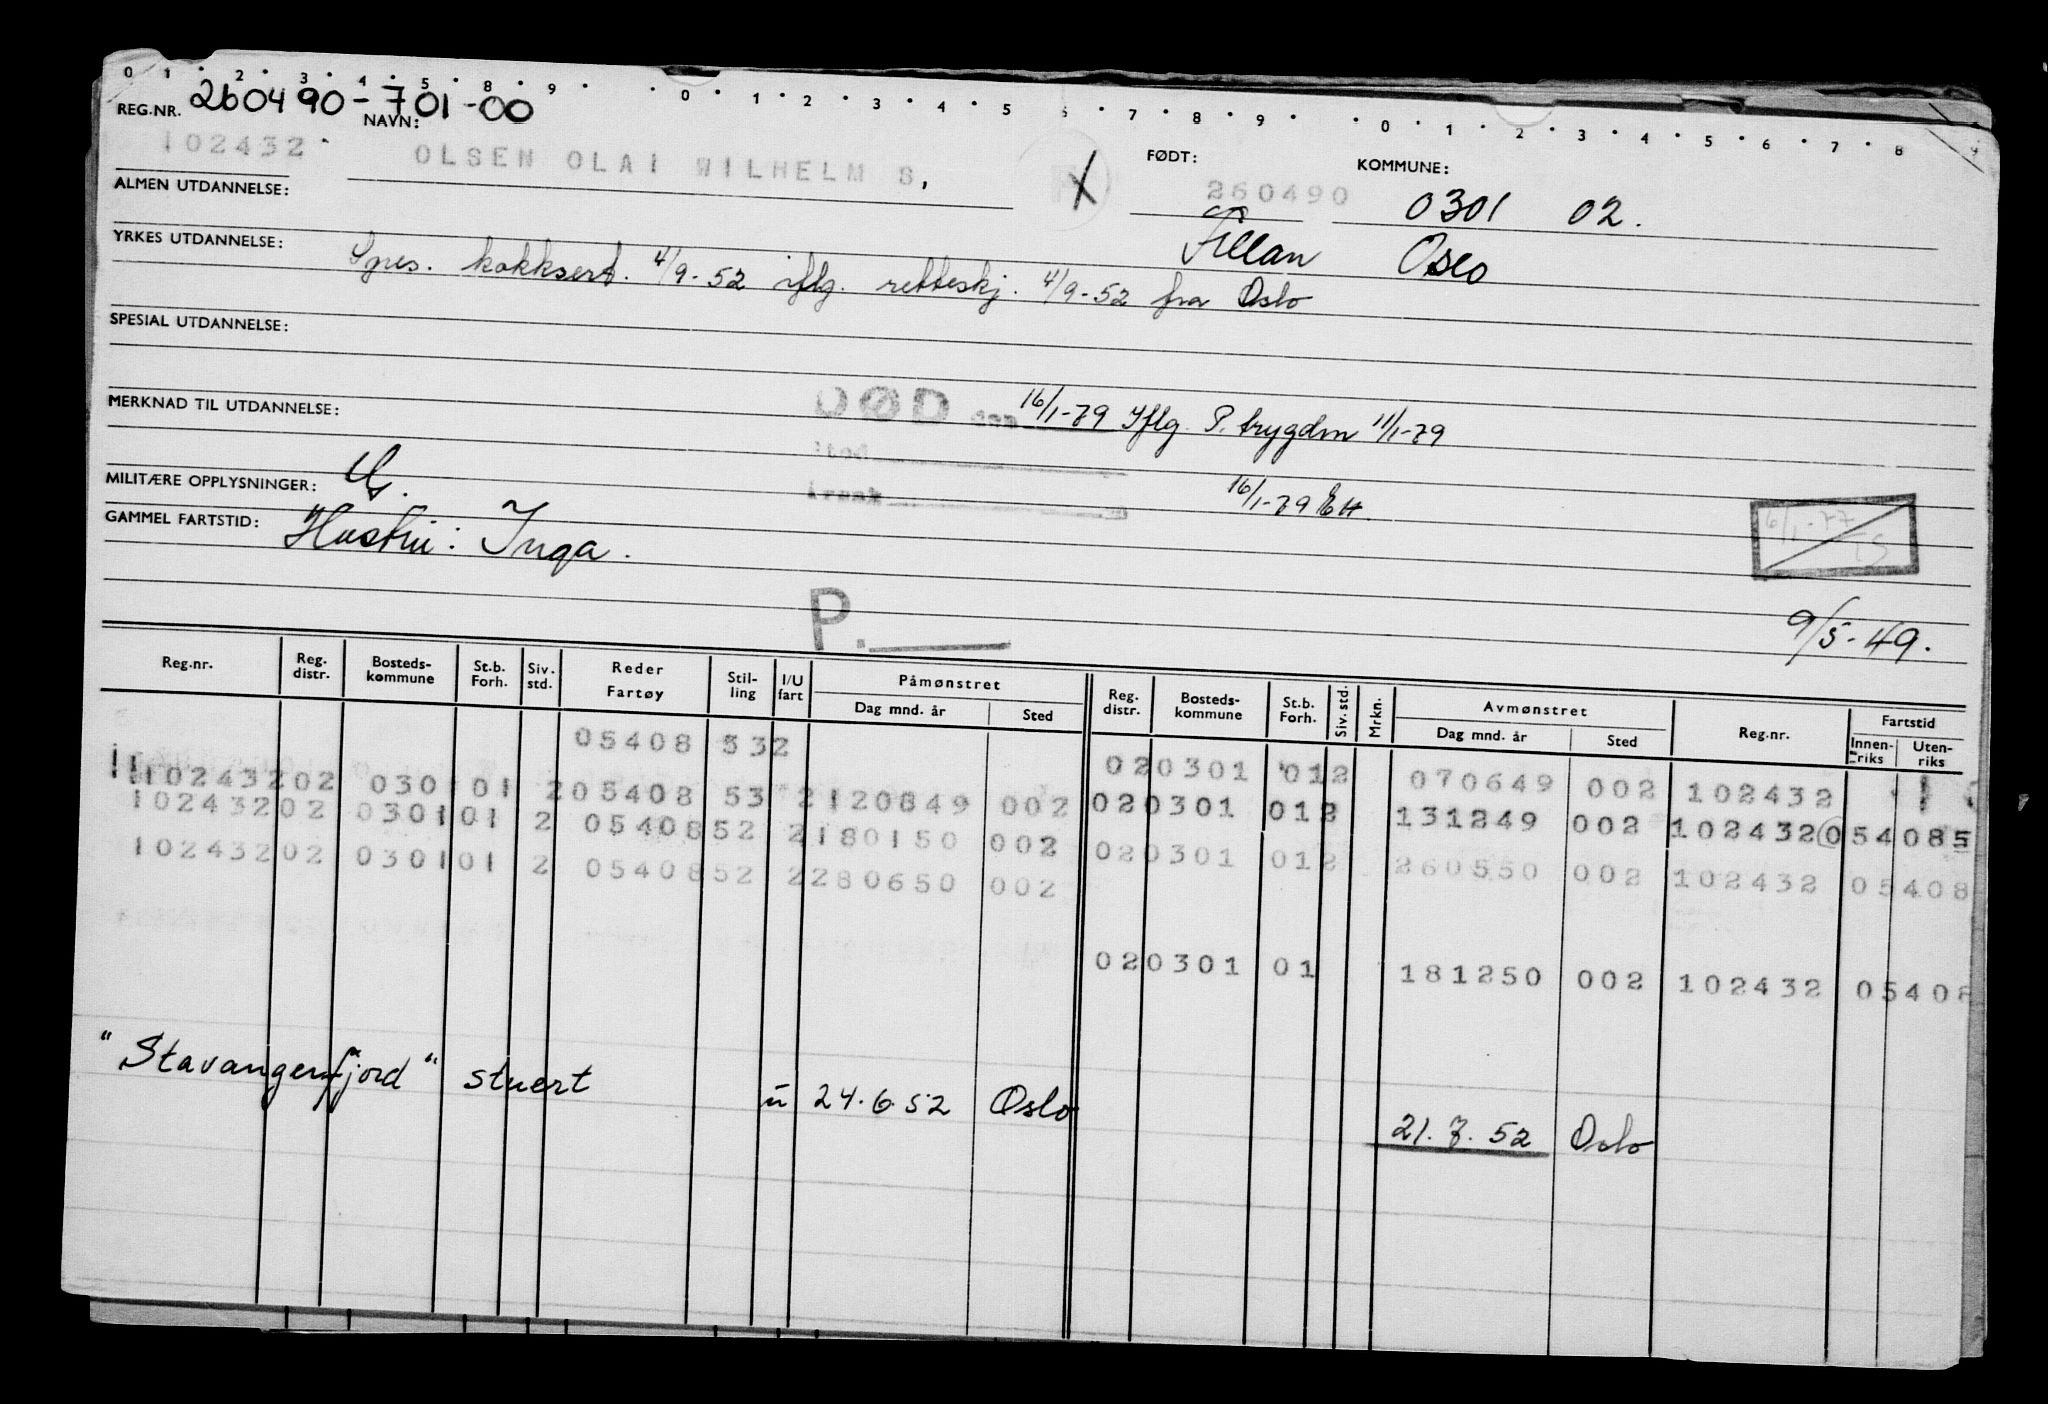 0 1 2 3 4 5 8 9 0 1 2 3 4 5 6 7 8 9 0 1 2 3 4 5 6 7 8 9
REG.NR. 260490-701-00
NAVN:
102432 OLSEN OLAI WILHELM S,
X
FØDT:
260490
Fillan
KOMMUNE:
0301 02.
Oslo
ALMEN UTDANNELSE:
YRKES UTDANNELSE: Spes. kokksert. 4/9-52 iflg. retteskj. 4/9-52 fra Oslo
SPESIAL UTDANNELSE:
MERKNAD TIL UTDANNELSE:
DØD den 16/1-79 Iflg. P. trygdm 11/1-79
Sted
Årsak
16/1-79 EH.
MILITÆRE OPPLYSNINGER:
GAMMEL FARTSTID: Hustru: Inga.
6/1-77
TS
P.
9/5-49.
Reg.nr. Reg. distr. Bosteds-kommune St.b. Forh. Siv. std. Reder Fartøy Stil-ling I/U fart Påmønstret Dag mnd. år Sted Reg. distr. Bosteds-kommune St.b. Forh. Siv. std. Mrkn. Avmønstret Dag mnd. år Sted Reg.nr. Fartstid Innen-riks Uten-riks
05408 532 020301 012 070649 002 102432
10243202 030101 205408 53 2120849 002 020301 012 131249 002 102432054085
10243202 030101 2 0540852 2180150 002 020301 012 260550 002 102432 05408
10243202 030101 2 0540852 2280650 002
020301 01 181250 002 102432 05408
"Stavangerfjord" stuert u 24.6.52 Oslo 21.7.52 Oslo